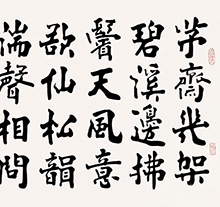 茅齋幾架
碧溪邊拂
鬢天風意
欲仙松韻
湍聲相問